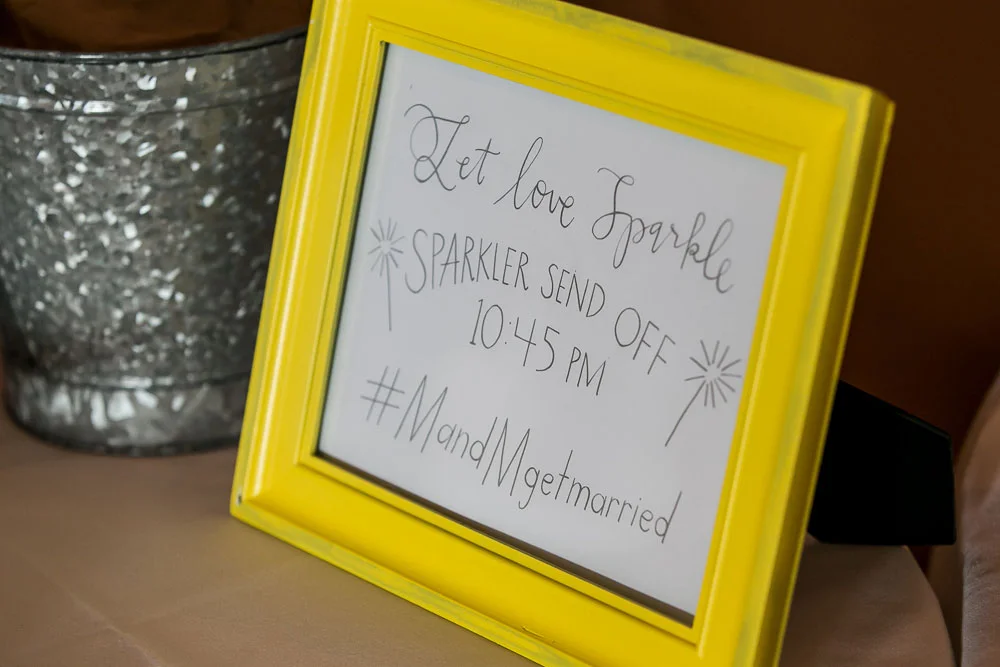 Let love Sparkle
SPARKLER SEND OFF
10:45 PM
#MandMgetmarried